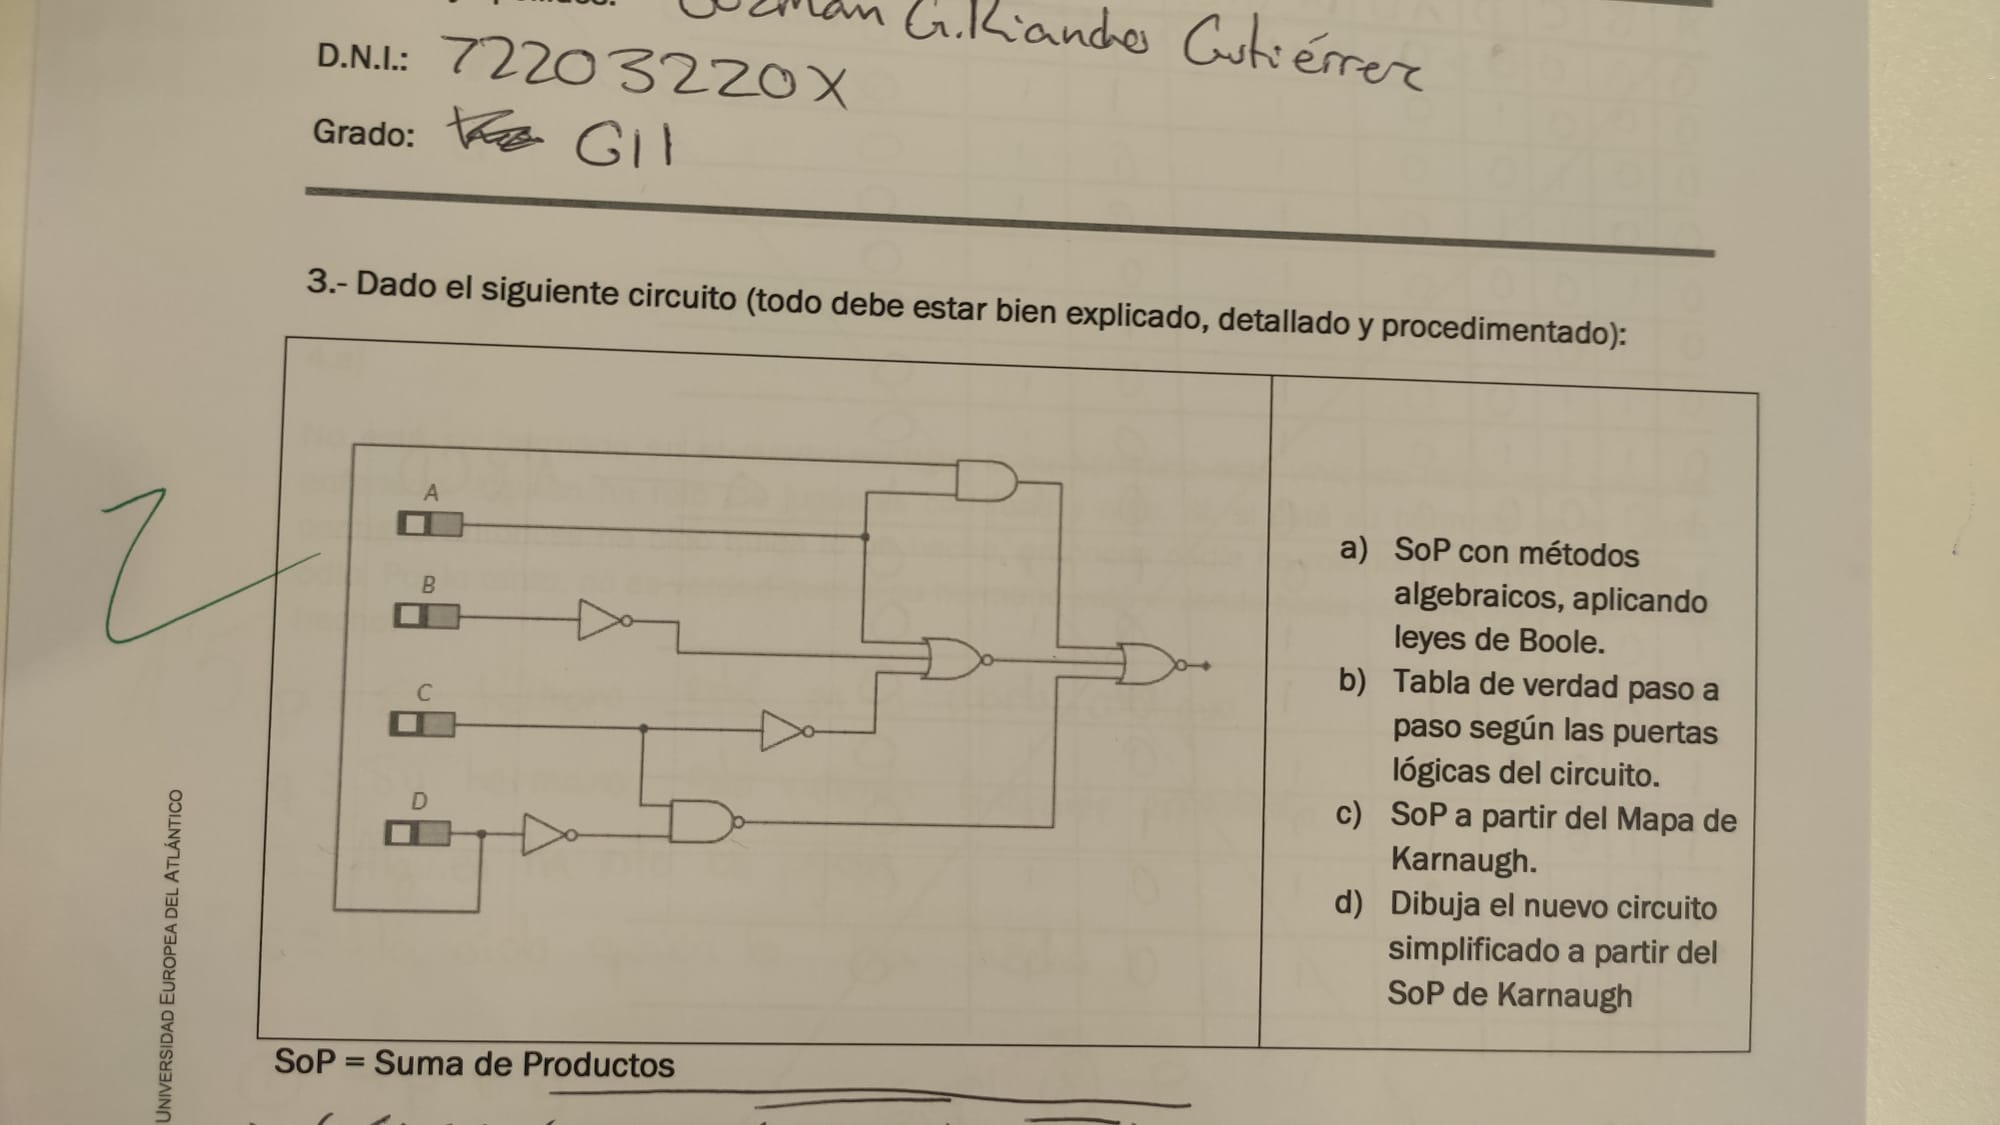 Guzmán G.Riancho Gutiérrez
D.N.I.: 72203220X
Grado: GII
3.- Dado el siguiente circuito (todo debe estar bien explicado, detallado y procedimentado):
A
B
C
D
a) SoP con métodos
algebraicos, aplicando
leyes de Boole.
b) Tabla de verdad paso a
paso según las puertas
lógicas del circuito.
c) SoP a partir del Mapa de
Karnaugh.
d) Dibuja el nuevo circuito
simplificado a partir del
SoP de Karnaugh
SoP = Suma de Productos
UNIVERSIDAD EUROPEA DEL ATLÁNTICO